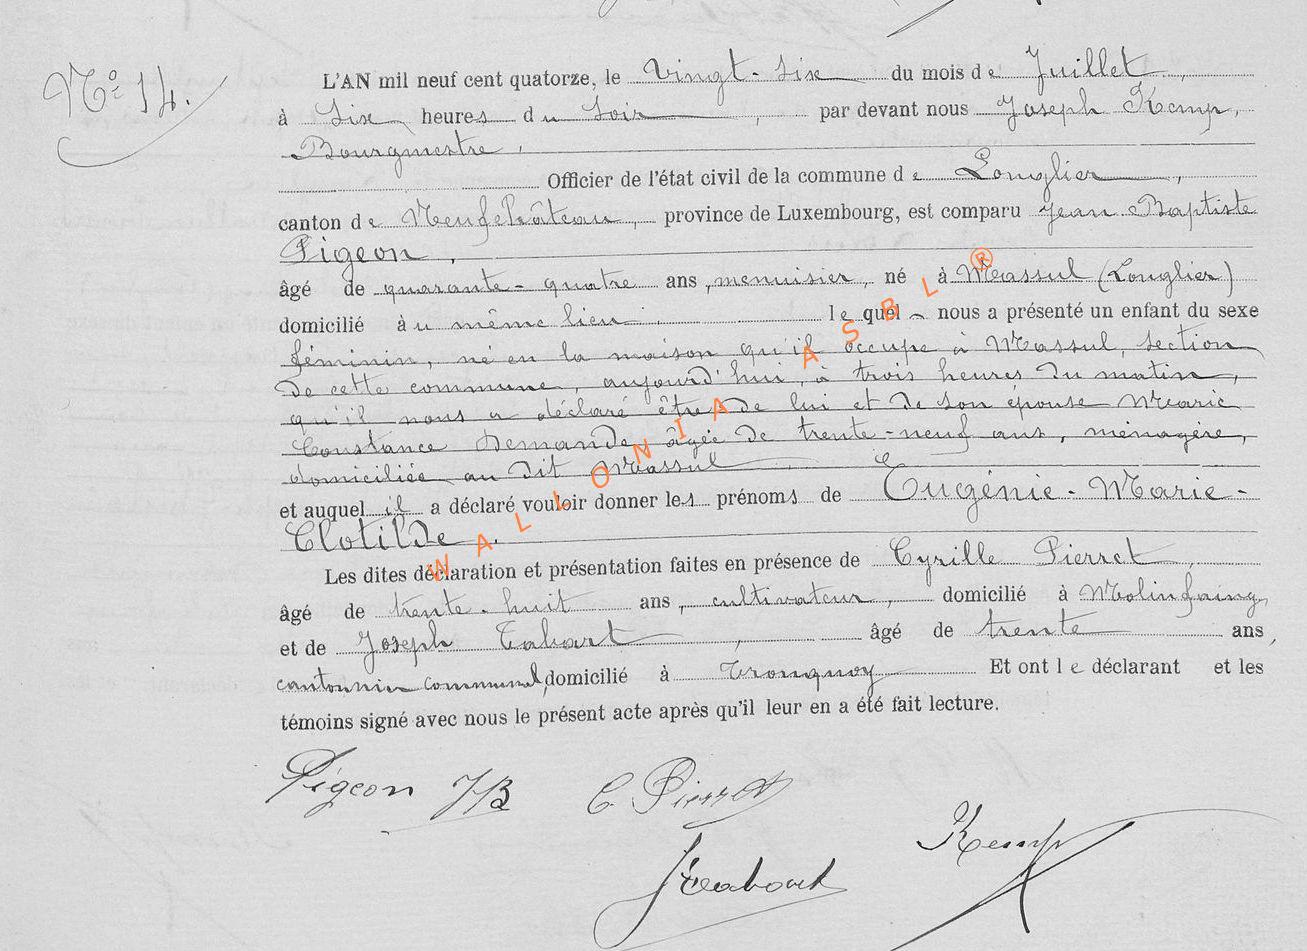 No 14.
L'AN mil neuf cent quatorze, le Vingt-six du mois de Juillet,
à Six heures du Soir, par devant nous Joseph Kemp,
Bourgmestre,
Officier de l'état civil de la commune de Longlier,
canton de Neufchâteau, province de Luxembourg, est comparu Jean Baptiste
Pigeon,
âgé de quarante-quatre ans, menuisier, né à Massul (Longlier)
domicilié au même lieu lequel nous a présenté un enfant du sexe
féminin, né en la maison qu'il occupe à Massul, section
de cette commune, aujourd'hui, à trois heures du matin,
qu'il nous a déclaré être de lui et de son épouse Marie
Constance Demande, âgée de trente-neuf ans, ménagère,
domiciliée au dit Massul
et auquel il a déclaré vouloir donner les prénoms de Eugénie-Marie-
Clotilde.
Les dites déclaration et présentation faites en présence de Cyrille Pierret,
âgé de trente-huit ans, cultivateur, domicilié à Molinfaing,
et de Joseph Tabart, âgé de trente ans,
cantonnier communal, domicilié à Tronquoy Et ont le déclarant et les
témoins signé avec nous le présent acte après qu'il leur en a été fait lecture.
Pigeon JB C. Pierret
Kemp
WALLONIA ASBL ®